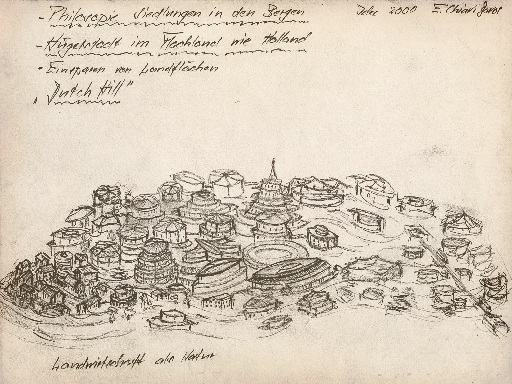 - Philosopie Siedlungen in den Bergen
Jahr 2000
- Hügelstadt im Flachland wie Holland
- Einsparen von Landflächen
"Dutch Hill"
Landwirtschaft als Natur